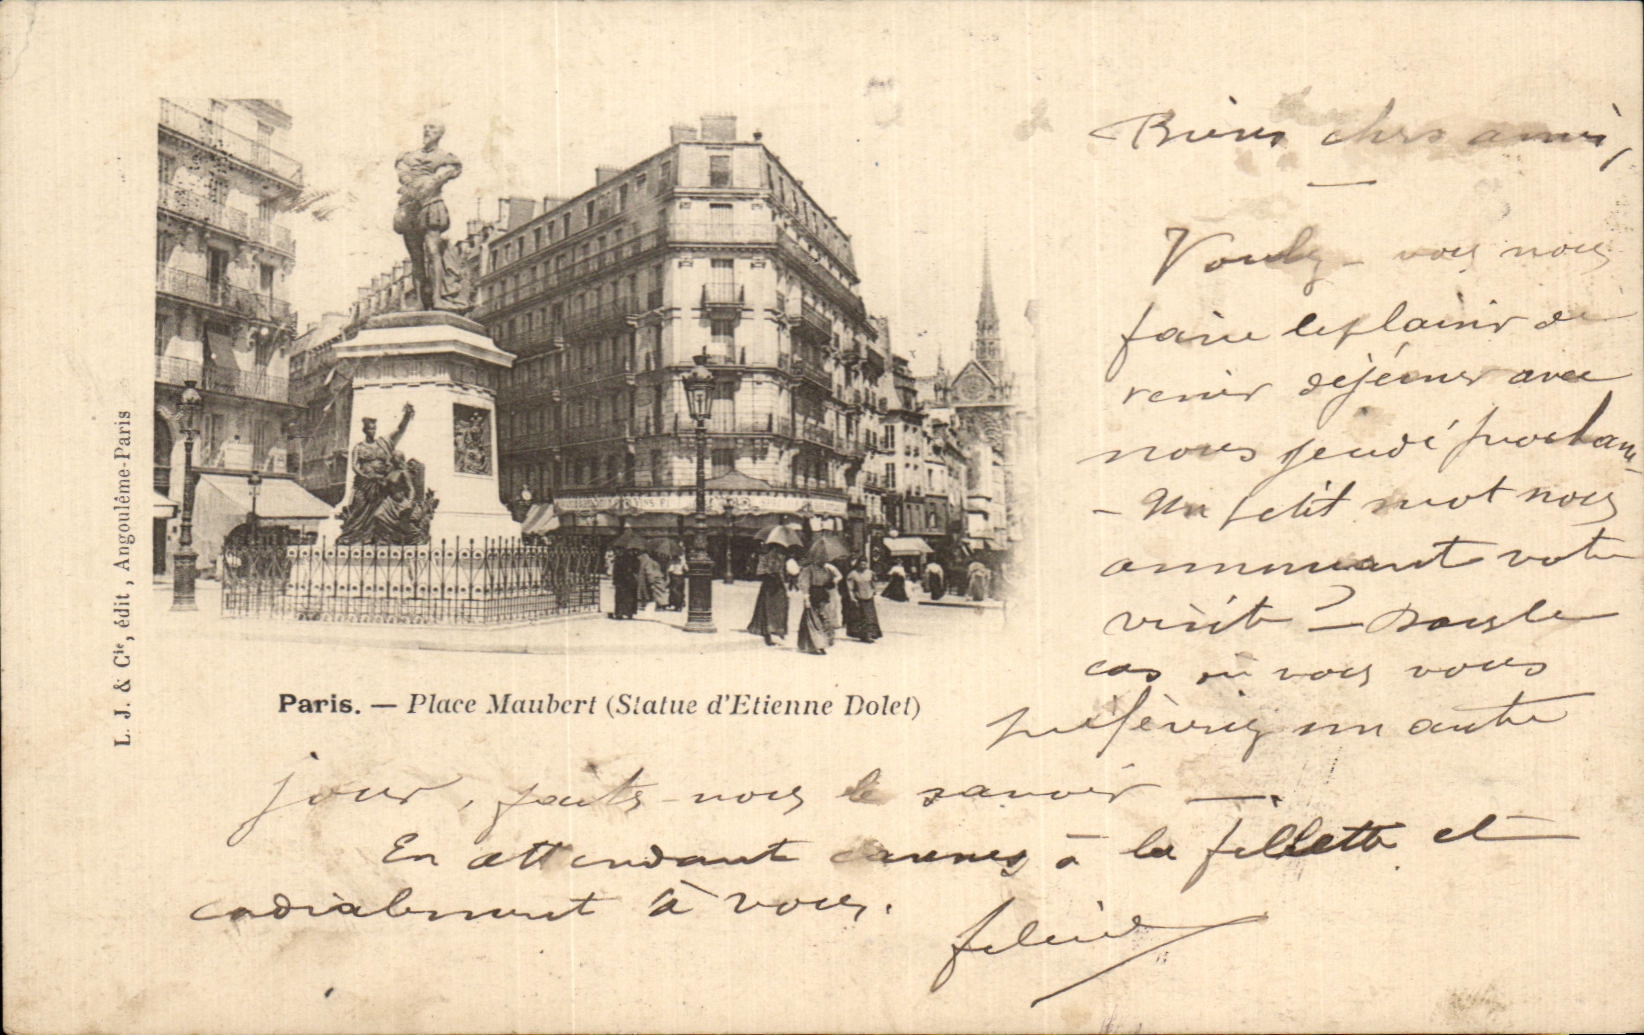 L. J. & Cie, édit, Angoulême-Paris
Paris. — Place Maubert (Statue d'Etienne Dolet)
Biens chers amis,
Voulez-vous nous
faire le plaisir de
venir déjeuner avec
nous jeudi prochain
- Un petit mot nous
annonçant votre
visite ? — Dans le
cas où vous vous
préfériez un autre
jour, faites-nous le savoir —.
En attendant caresses à la fillette et
cordialement à vous.